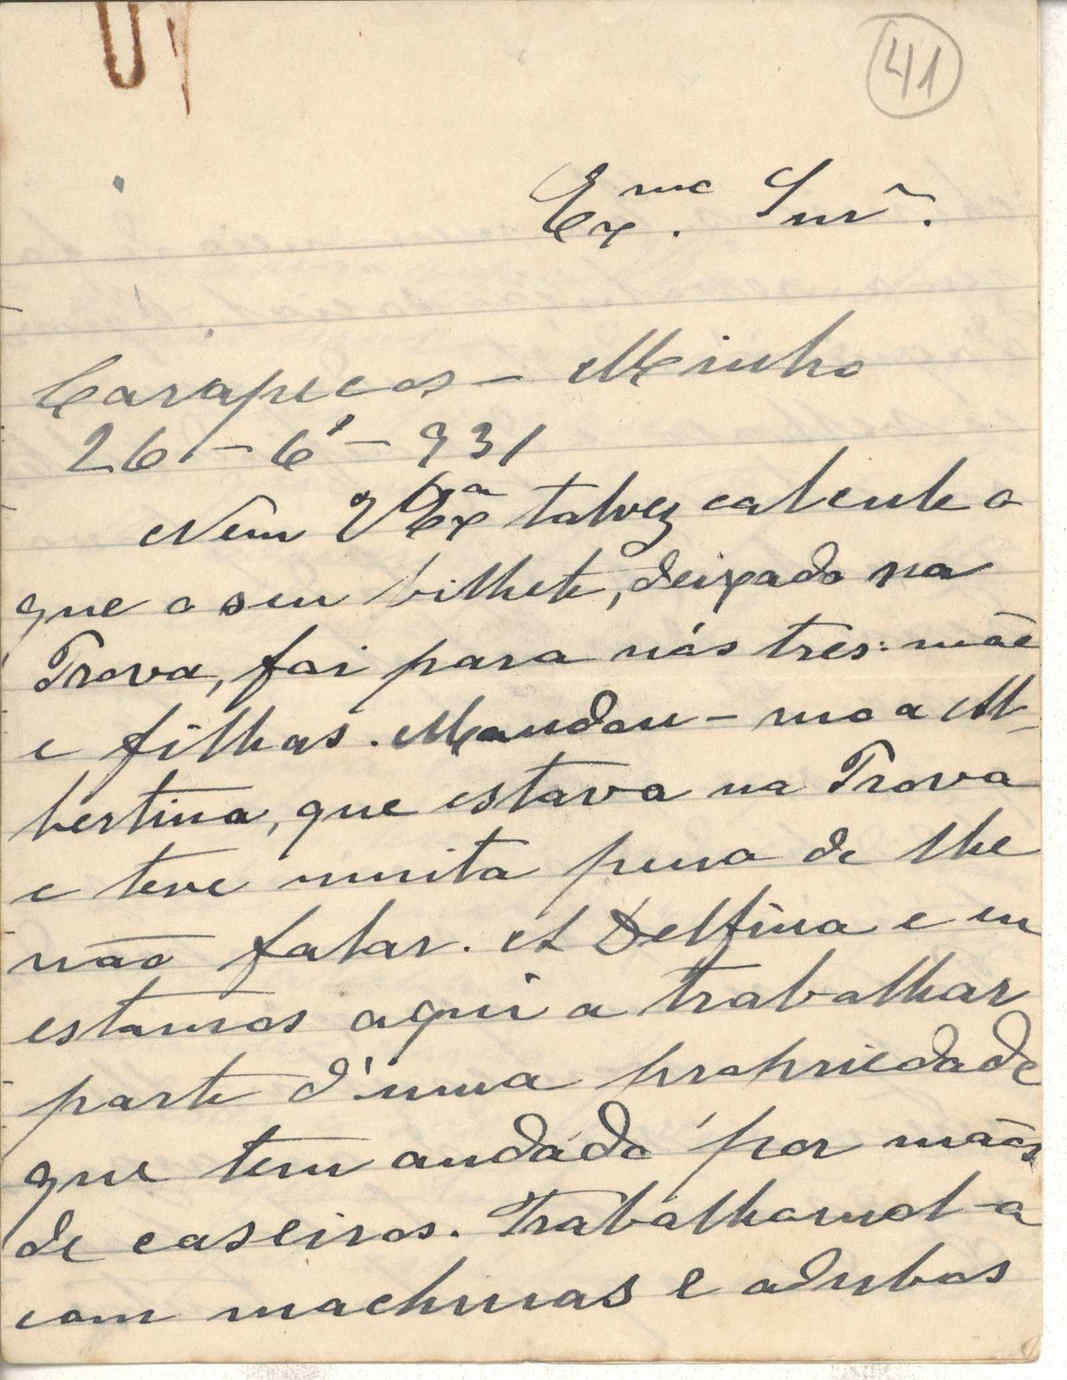 41
Exma. Snrª.
Carapeços - Minho
26-6-931
Nem V Exª talvez calcule o
que o seu bilhete, deixado na
Trova, foi para nós tres: mãe
e filhas. Mandou-mo a Al-
bertina, que estava na Trova
e teve muita pena de lhe
não falar. A Delfina e eu
estamos aqui a trabalhar
parte d'uma propriedade
que tem andado por mãos
de caseiros. Trabalhamol-a
com machinas e adubos